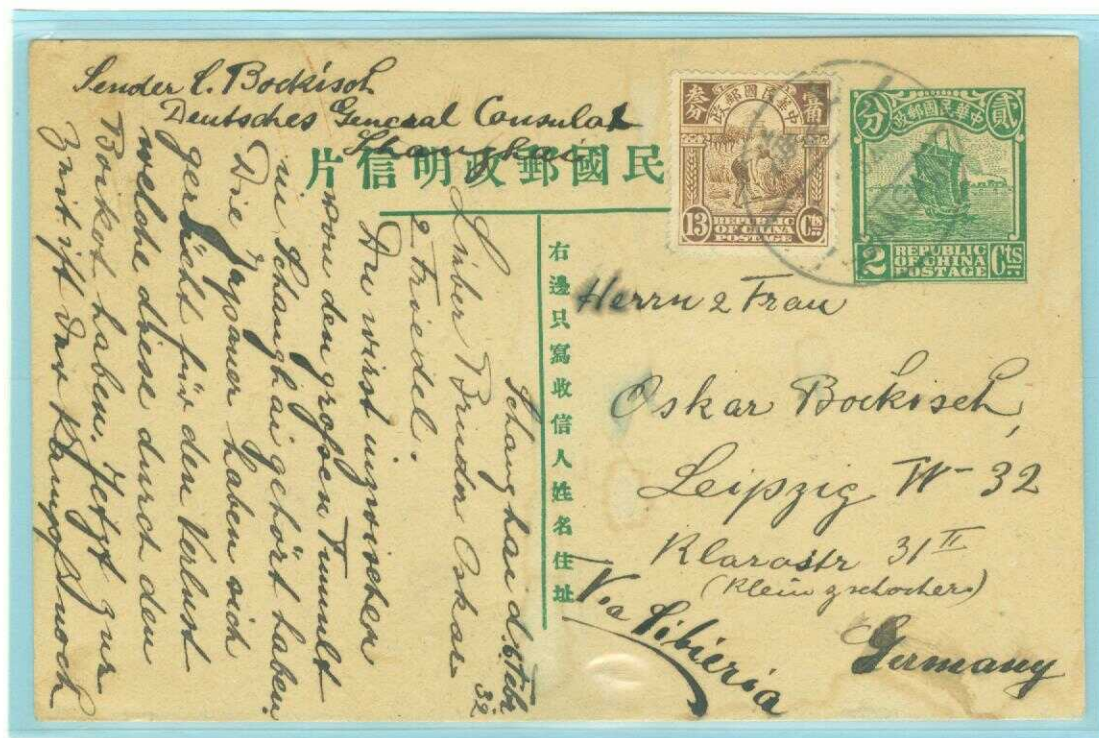 Sender C. Bockisch
Deutsches General Consulat
Schanghai
片信明政郵國民
叁分
政郵國民華中
13 REPUBLIC OF CHINA POSTAGE Cts
分
政郵國民華中
貳
2 REPUBLIC OF CHINA POSTAGE Cts
右邊只寫收信人姓名住址
Herrn & Frau
Oskar Bockisch,
Leipzig W-32
Klarastr 31 II
(Kleinzschocher)
Germany
Via Sibieria
Schanghai d. 6. Febr 32
Lieber Bruder Oskar
& Friedel.
Du wirst inzwischen
von den großen Tumult
in Schanghai gehört haben.
Die Japaner haben sich
gerächt für den Verlust
welche diese durch den
Boikot haben. Jetzt zur
Zeit ist der Kampf noch